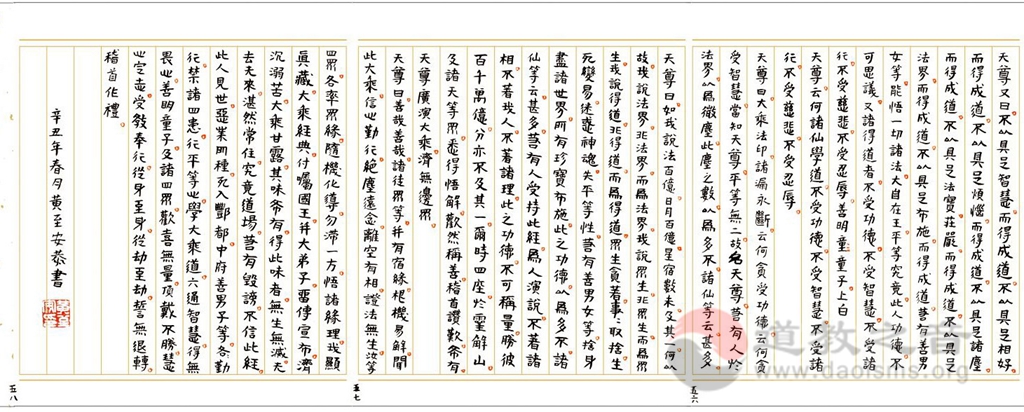 天尊又曰不以具足智慧而得成道不以具足相好
而得成道不以具足煩惱而得成道不以具足諸塵
而得成道不以具足法寶莊嚴而得成道不以具足
法界而得成道不以具足布施而得成道若有善男
女等能悟一切諸法大自在王平等究竟此人功德不
可思議又諸得道者不受功德不受智慧不受諸
行不受慈悲不受忍辱善明童童子上白
天尊云何諸仙學道不受功德不受智慧不受諸
行不受慈悲不受忍辱
天尊曰大乘法印諸漏永斷云何貪受功德云何貪
受智慧當知天尊平等無二故名天尊若有人於
法界以為微塵此塵之數以為多不諸仙等云甚多
五六
天尊曰如我說法百億日月百億星宿數未及其一何以
故我說法界非法界而為法界我說眾生非眾生而為眾
生我說得道非得道而為得道眾生貪著事事取捨生
死變易徒悲神魂失平等性若有善男女等捨身
盡諸世界所有珍寶布施此之功德以為多不諸
仙等云甚多若有人受持此經為人演說不著諸
相不著我人不著諸理此之功德不可稱量勝彼
百千萬億分亦不及其一爾時四座於靈解山
及諸天等眾悉得悟解歡然稱善稽首讚歎希有
天尊廣演大乘濟無邊眾
天尊曰善哉善哉諸徒眾等并有宿緣棍機易解聞
此大乘信心勤行絕塵遠念離空有相證法無生汝等
五七
四眾各率眾緣隨機化導勿滯一方悟諸緣理我顯
真藏大乘經典付囑國王并大弟子雷傳宣布濟
沉溺苦大乘甘露其味希有得此味者無生無滅无
去无來湛然常住究竟道場若有毀謗不信此經
此人見世惡業閉種死入酆都中府善男子等各勤
行禁諸四患行平等心學大乘道六通智慧得無
畏心善明童子及諸四眾歡喜無量頂戴不勝慧
心定志受教奉行從身至身從劫至劫誓無退轉
稽首作禮
辛丑年春月黃至安恭書
五八
道教之音
www.daoisms.org